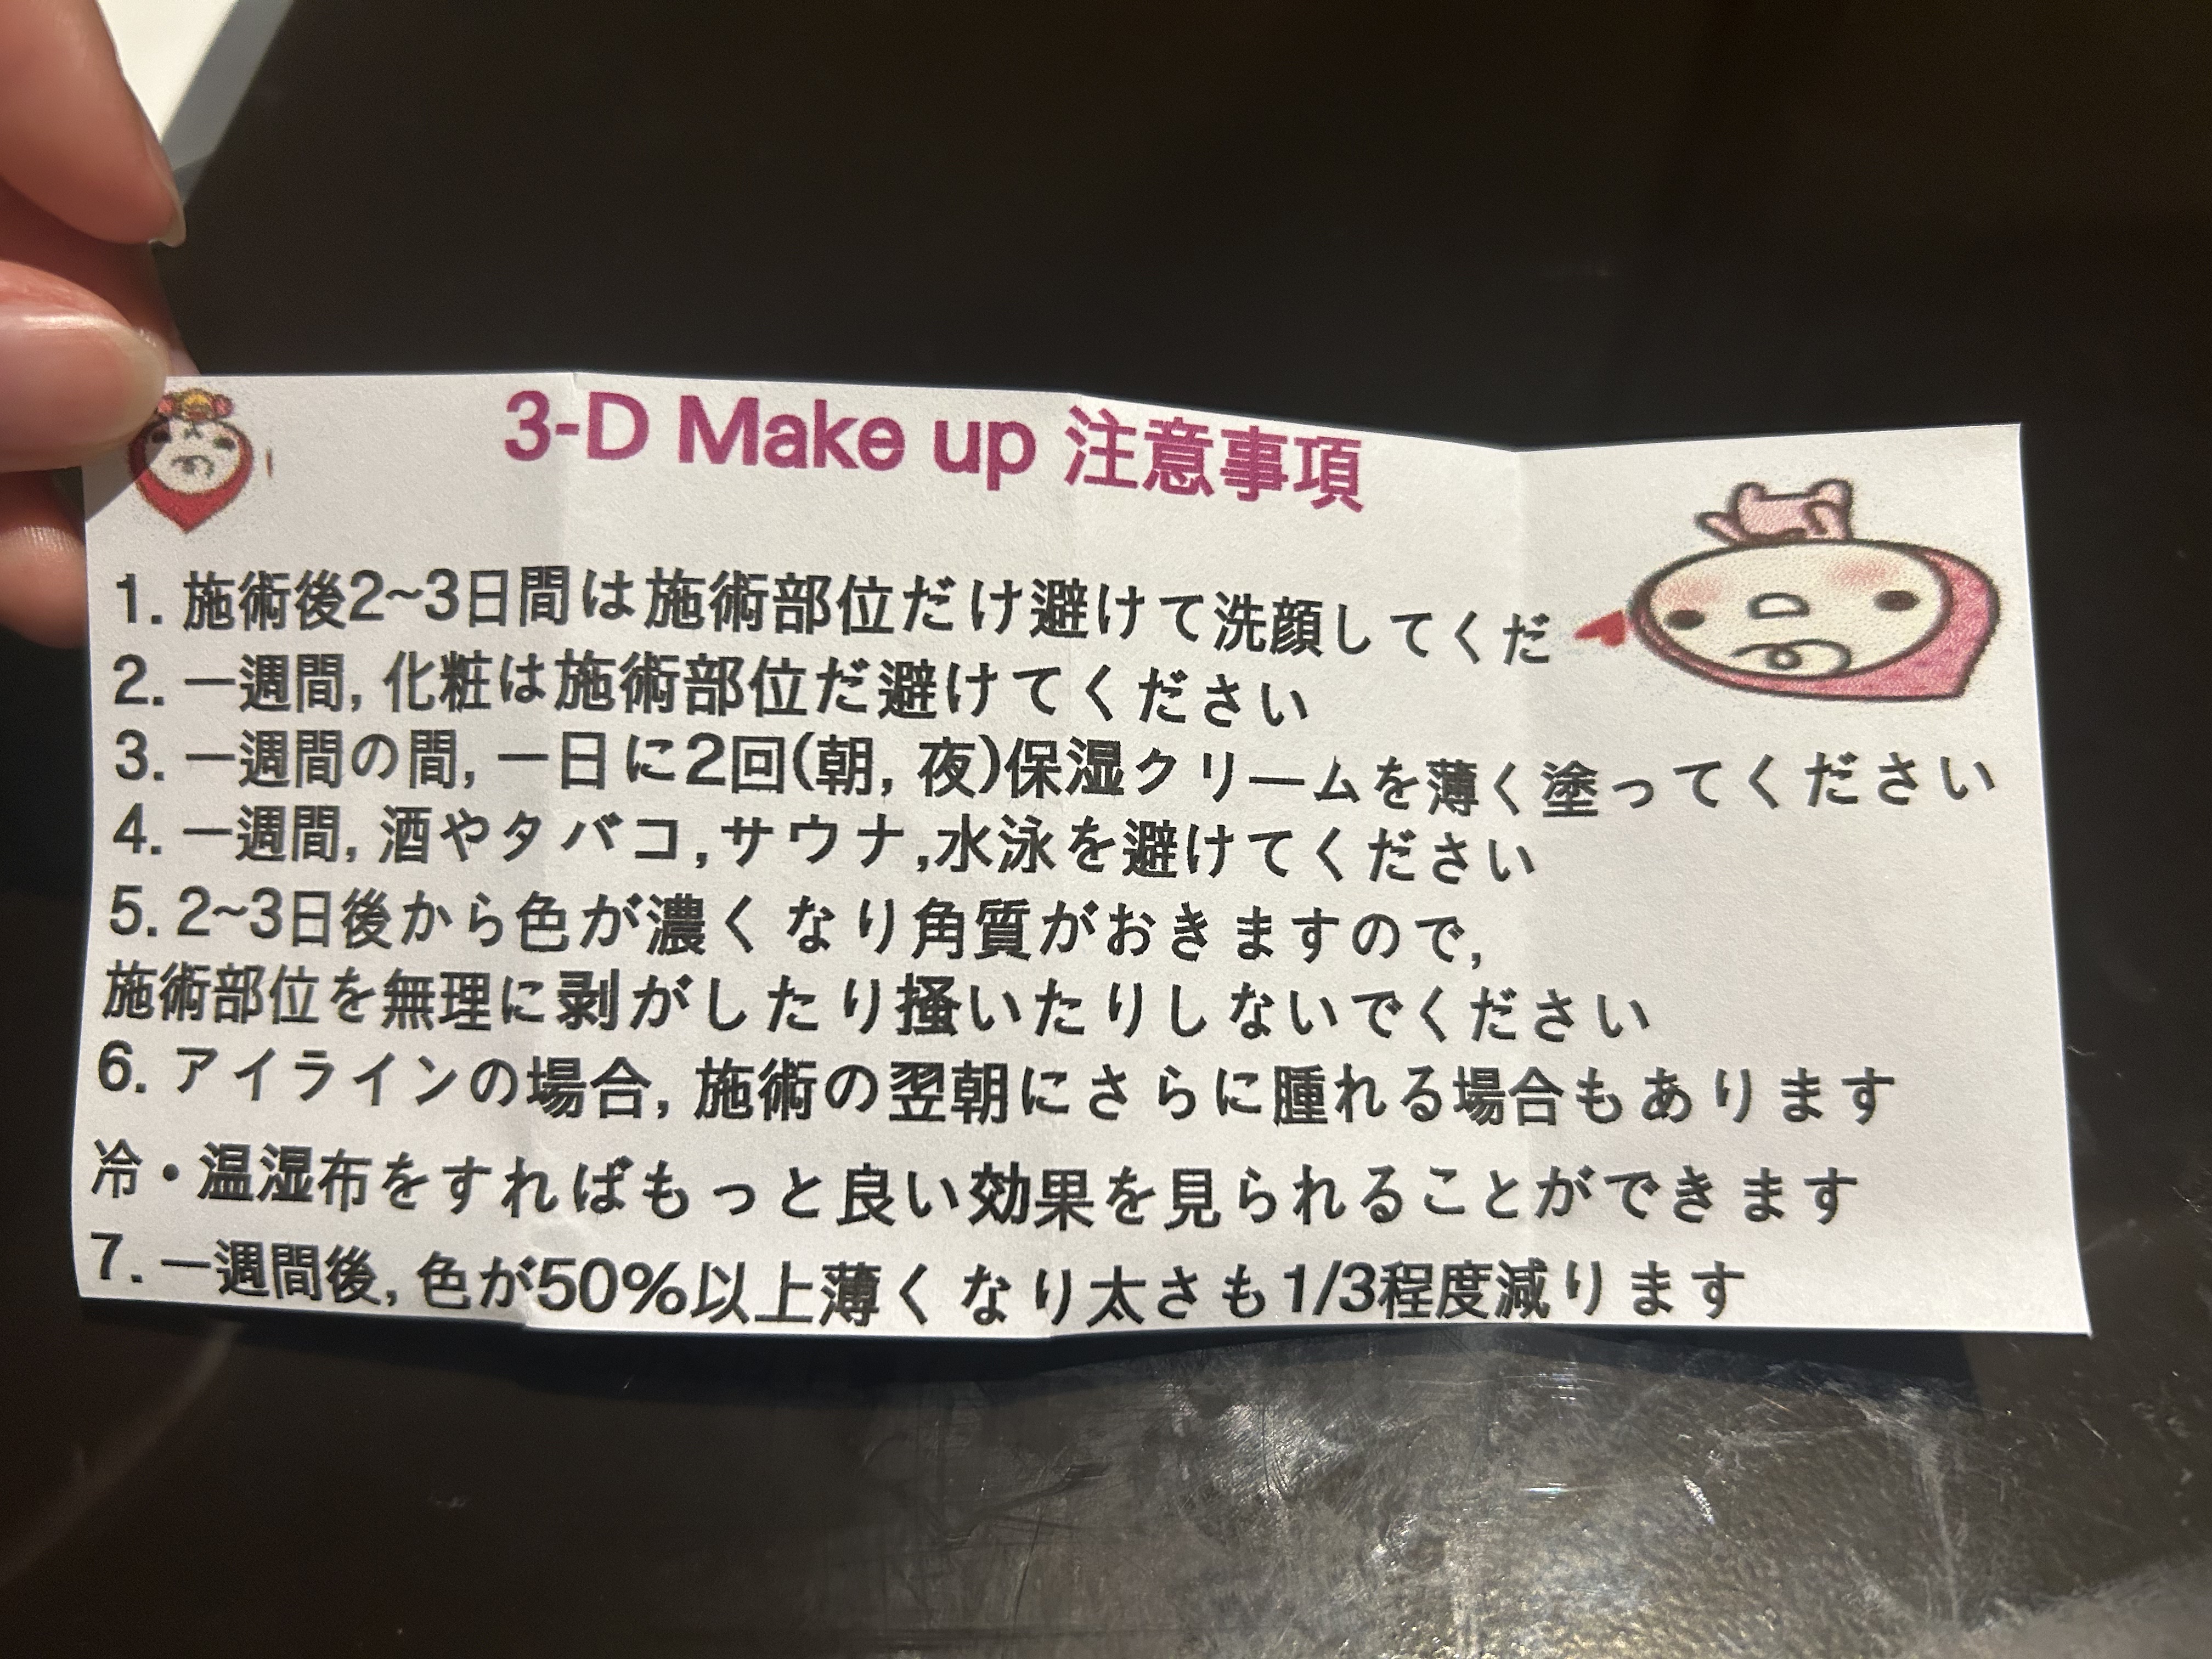 3-D Make up 注意事項
1. 施術後2~3日間は施術部位だけ避けて洗顔してくだ
2. 一週間, 化粧は施術部位だ避けてください
3. 一週間の間, 一日に2回(朝, 夜)保湿クリームを薄く塗ってください
4. 一週間, 酒やタバコ,サウナ,水泳を避けてください
5. 2~3日後から色が濃くなり角質がおきますので,
施術部位を無理に剥がしたり掻いたりしないでください
6. アイラインの場合, 施術の翌朝にさらに腫れる場合もあります
冷・温湿布をすればもっと良い効果を見られることができます
7. 一週間後, 色が50%以上薄くなり太さも1/3程度減ります